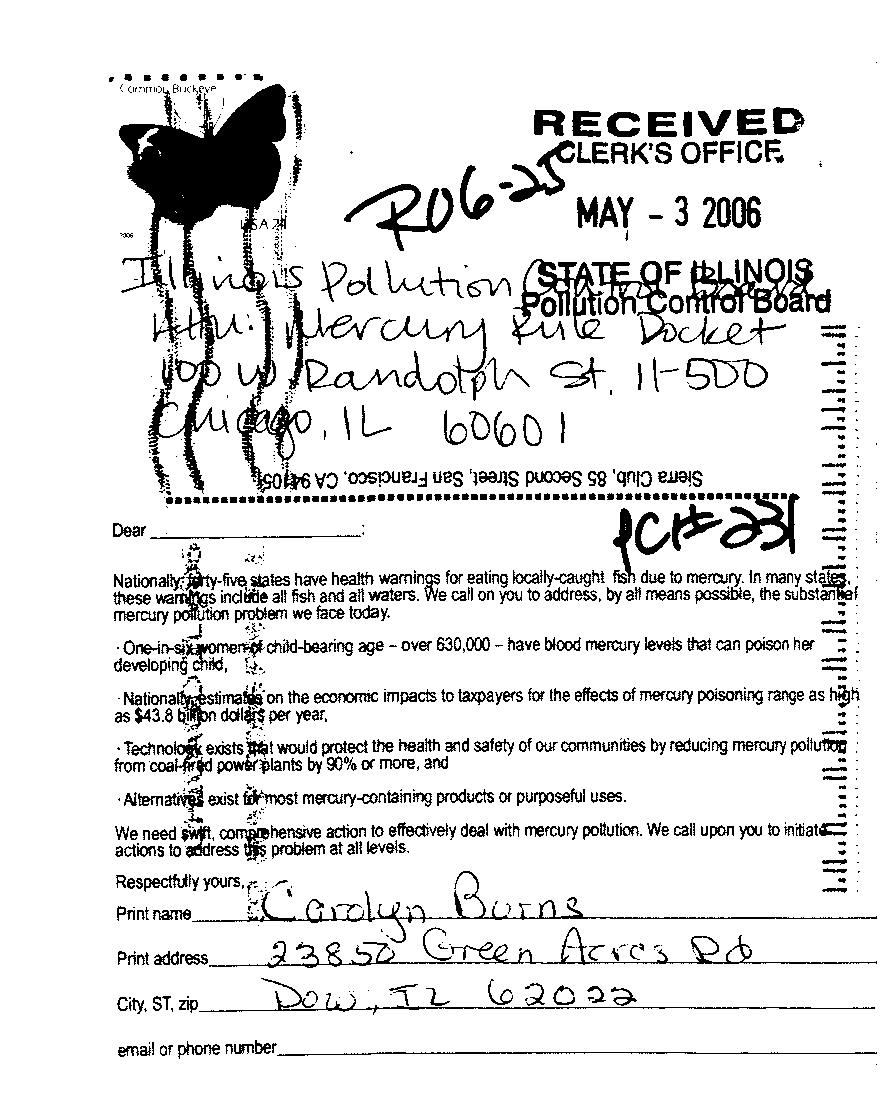 Common Buckeye
USA 24
2006
RECEIVED
CLERK'S OFFICE
R06-25
MAY - 3 2006
STATE OF ILLINOIS
Pollution Control Board
Illinois Pollution Control Board
Attn: Mercury Rule Docket
100 W Randolph St, 11-500
Chicago, IL 60601
Sierra Club, 85 Second Street, San Francisco, CA 94105
PC# 231
Dear
Nationally, forty-five states have health warnings for eating locally-caught fish due to mercury. In many states,
these warnings include all fish and all waters. We call on you to address, by all means possible, the substantial
mercury pollution problem we face today.
· One-in-six women of child-bearing age – over 630,000 – have blood mercury levels that can poison her
developing child,
· Nationally, estimates on the economic impacts to taxpayers for the effects of mercury poisoning range as high
as $43.8 billion dollars per year,
· Technology exists that would protect the health and safety of our communities by reducing mercury pollution
from coal-fired power plants by 90% or more, and
· Alternatives exist for most mercury-containing products or purposeful uses.
We need swift, comprehensive action to effectively deal with mercury pollution. We call upon you to initiate
actions to address this problem at all levels.
Respectfully yours,
Print name Carolyn Burns
Print address 23850 Green Acres Rd
City, ST, zip Dow, IL 62022
email or phone number